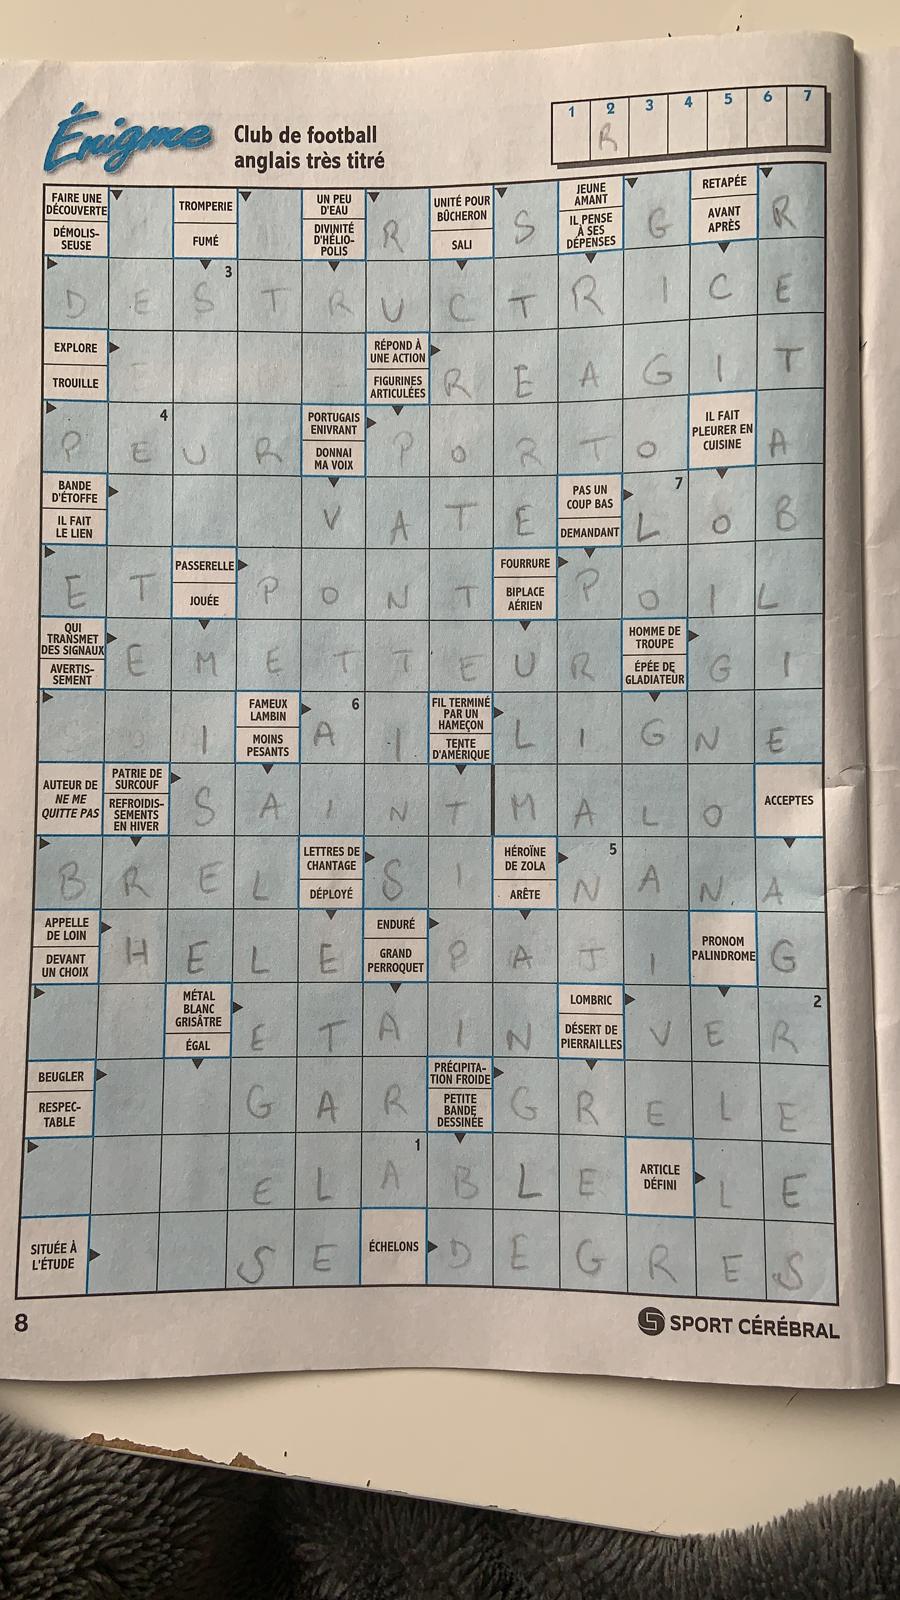 Énigme
Club de football
anglais très titré
1 2 3 4 5 6 7
R
FAIRE UNE DÉCOUVERTE
DÉMOLIS-
SEUSE
TROMPERIE
FUMÉ
UN PEU D'EAU
DIVINITÉ D'HÉLIO-
POLIS
R
UNITÉ POUR BÛCHERON
SALI
S
JEUNE AMANT
IL PENSE À SES DÉPENSES
G
RETAPÉE
AVANT APRÈS
R
3
D E S T R U C T R I C E
EXPLORE
TROUILLE
RÉPOND À UNE ACTION
FIGURINES ARTICULÉES
R E A G I T
4
P E U R
PORTUGAIS ENIVRANT
DONNAI MA VOIX
P O R T O
IL FAIT PLEURER EN CUISINE
A
BANDE D'ÉTOFFE
IL FAIT LE LIEN
V A T E
PAS UN COUP BAS
DEMANDANT
7
L O B
E T
PASSERELLE
JOUÉE
P O N T
FOURRURE
BIPLACE AÉRIEN
P O I L
QUI TRANSMET DES SIGNAUX
AVERTIS-
SEMENT
E M E T T E U R
HOMME DE TROUPE
ÉPÉE DE GLADIATEUR
G I
I
FAMEUX LAMBIN
MOINS PESANTS
6
A I
FIL TERMINÉ PAR UN HAMEÇON
TENTE D'AMÉRIQUE
L I G N E
AUTEUR DE NE ME QUITTE PAS
PATRIE DE SURCOUF
REFROIDIS-
SEMENTS EN HIVER
S A I N T M A L O
ACCEPTES
B R E L
LETTRES DE CHANTAGE
DÉPLOYÉ
S I
HÉROÏNE DE ZOLA
ARÊTE
5
N A N A
APPELLE DE LOIN
DEVANT UN CHOIX
H E L E
ENDURÉ
GRAND PERROQUET
P A T I
PRONOM PALINDROME
G
MÉTAL BLANC GRISÂTRE
ÉGAL
E T A I N
LOMBRIC
DÉSERT DE PIERRAILLES
2
V E R
BEUGLER
RESPEC-
TABLE
G A R
PRÉCIPITA-
TION FROIDE
PETITE BANDE DESSINÉE
G R E L E
1
E L A B L E
ARTICLE DÉFINI
L E
SITUÉE À L'ÉTUDE
S E
ÉCHELONS
D E G R E S
8
SPORT CÉRÉBRAL